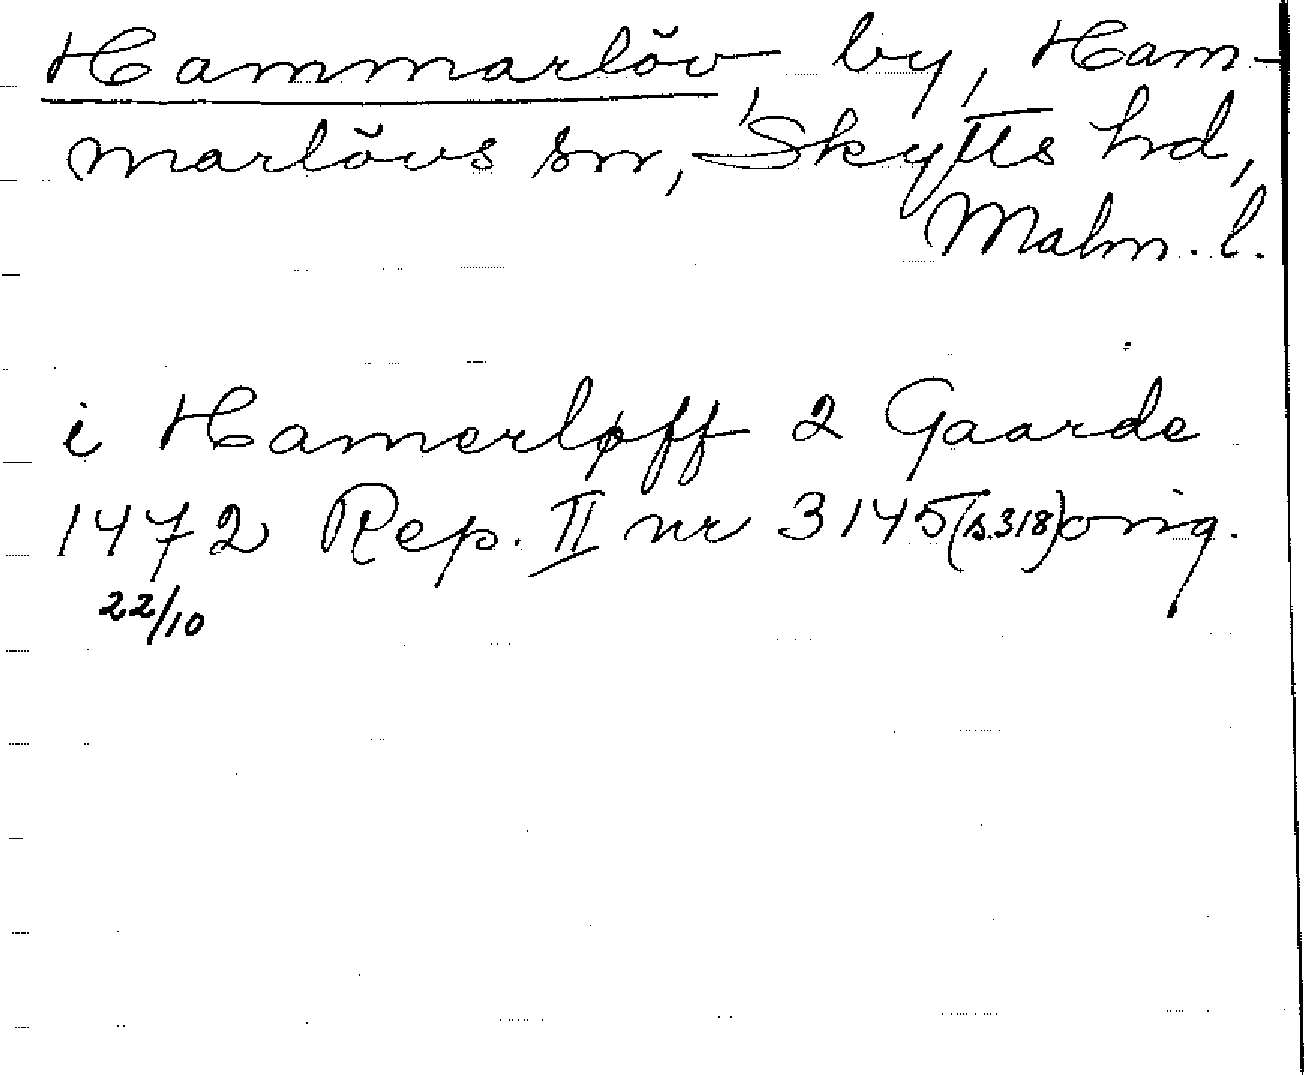 Hammarlöv, by, Ham-
marlövs sn, Skytts hd,
Malm. l.
i Hamerløff 2 Gaarde
1472 Rep. II nr 3145 (s. 318) orig.
22/10